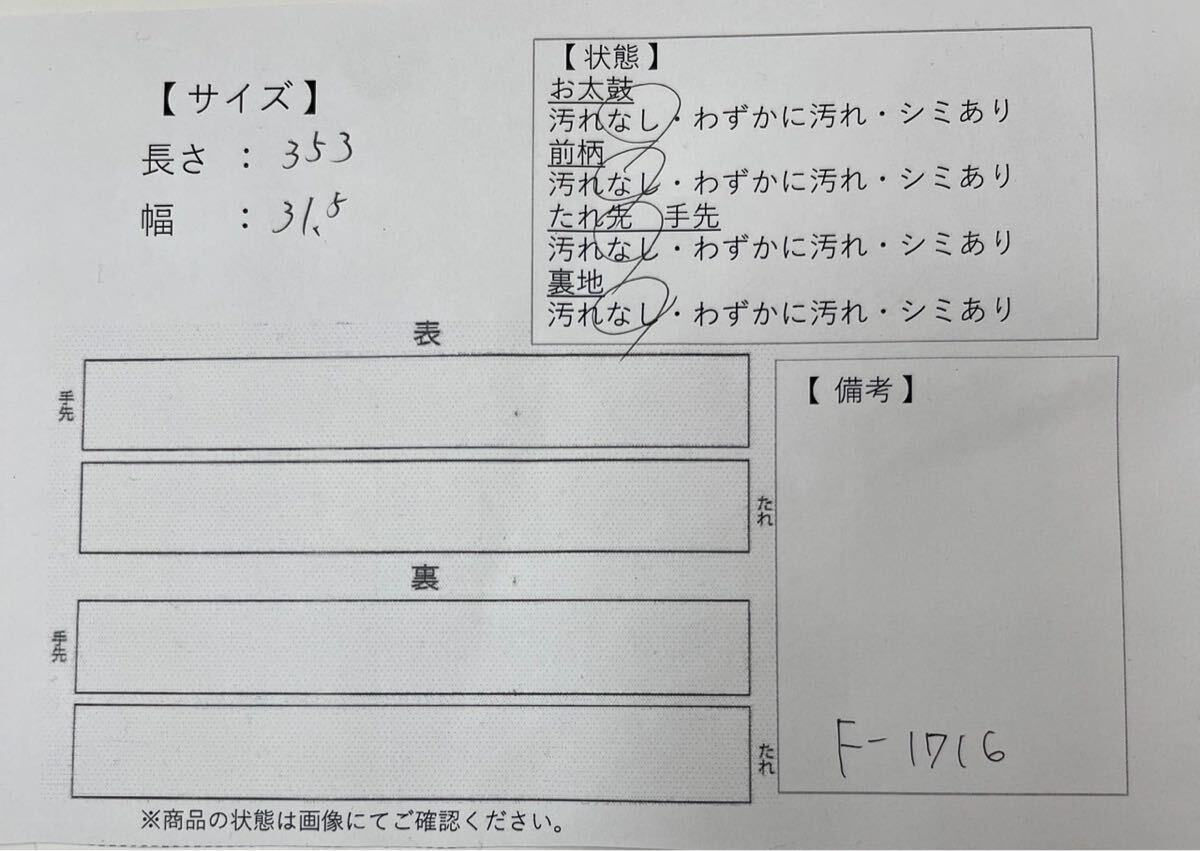 【サイズ】
長さ : 353
幅 : 31.5
【状態】
お太鼓
汚れなし・わずかに汚れ・シミあり
前柄
汚れなし・わずかに汚れ・シミあり
たれ先 手先
汚れなし・わずかに汚れ・シミあり
裏地
汚れなし・わずかに汚れ・シミあり
表
手先
たれ
裏
手先
たれ
【備考】
F-1716
※商品の状態は画像にてご確認ください。